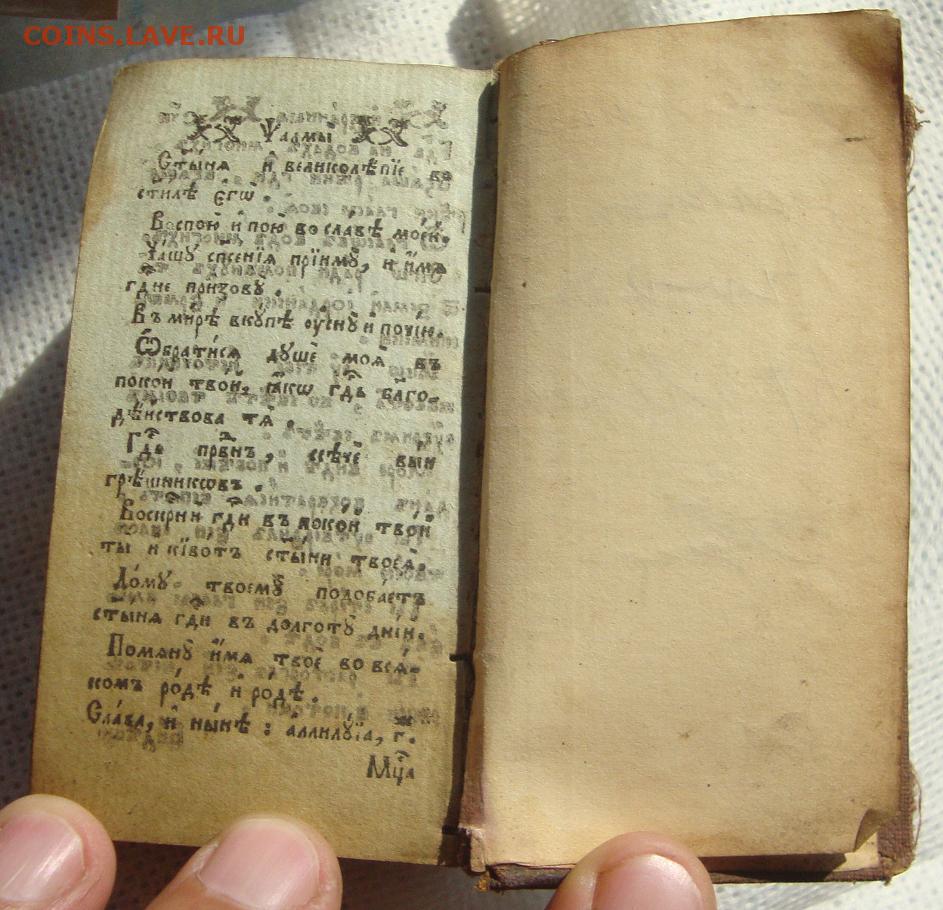 COINS.LAVE.RU
Ѱалмы̀
С҃ты́нѧ и҆ великолѣ́пїе во
с҃тилѣ є҆гѡ̀.
Воспою̀ и҆ пою̀ во славѣ мое́й.
Ча́шꙋ сп҃се́нїѧ прїимꙋ̀, и҆ и҆́мѧ
гд҃не призовꙋ̀.
Въ ми́рѣ вкꙋ́пѣ оу҆снꙋ̀ и҆ почі́ю.
Ѡ҆брати́сѧ дꙋшѐ моѧ̀ въ
поко́й тво́й, ꙗ҆́кѡ гд҃ь бл҃го-
дѣ́йствова тѧ̀.
Гд҃ь првⷣнъ, ссѣчѐ вы́и
грѣ́шникѡвъ.
Воскр҃ни гд҃и въ поко́й тво́й
ты̀ и҆ кївѡ́тъ с҃ты́ни твоеѧ̀.
До́мꙋ твоемꙋ̀ подоба́етъ
с҃ты́нѧ гд҃и въ долготꙋ̀ дні́й.
Помѧнꙋ̀ и҆́мѧ твоѐ во всѧ́-
комъ ро́дѣ и҆ ро́дѣ.
Сла́ва, и҆ ны́нѣ: а҆ллилꙋ́їа, г҃.
Мц҃а